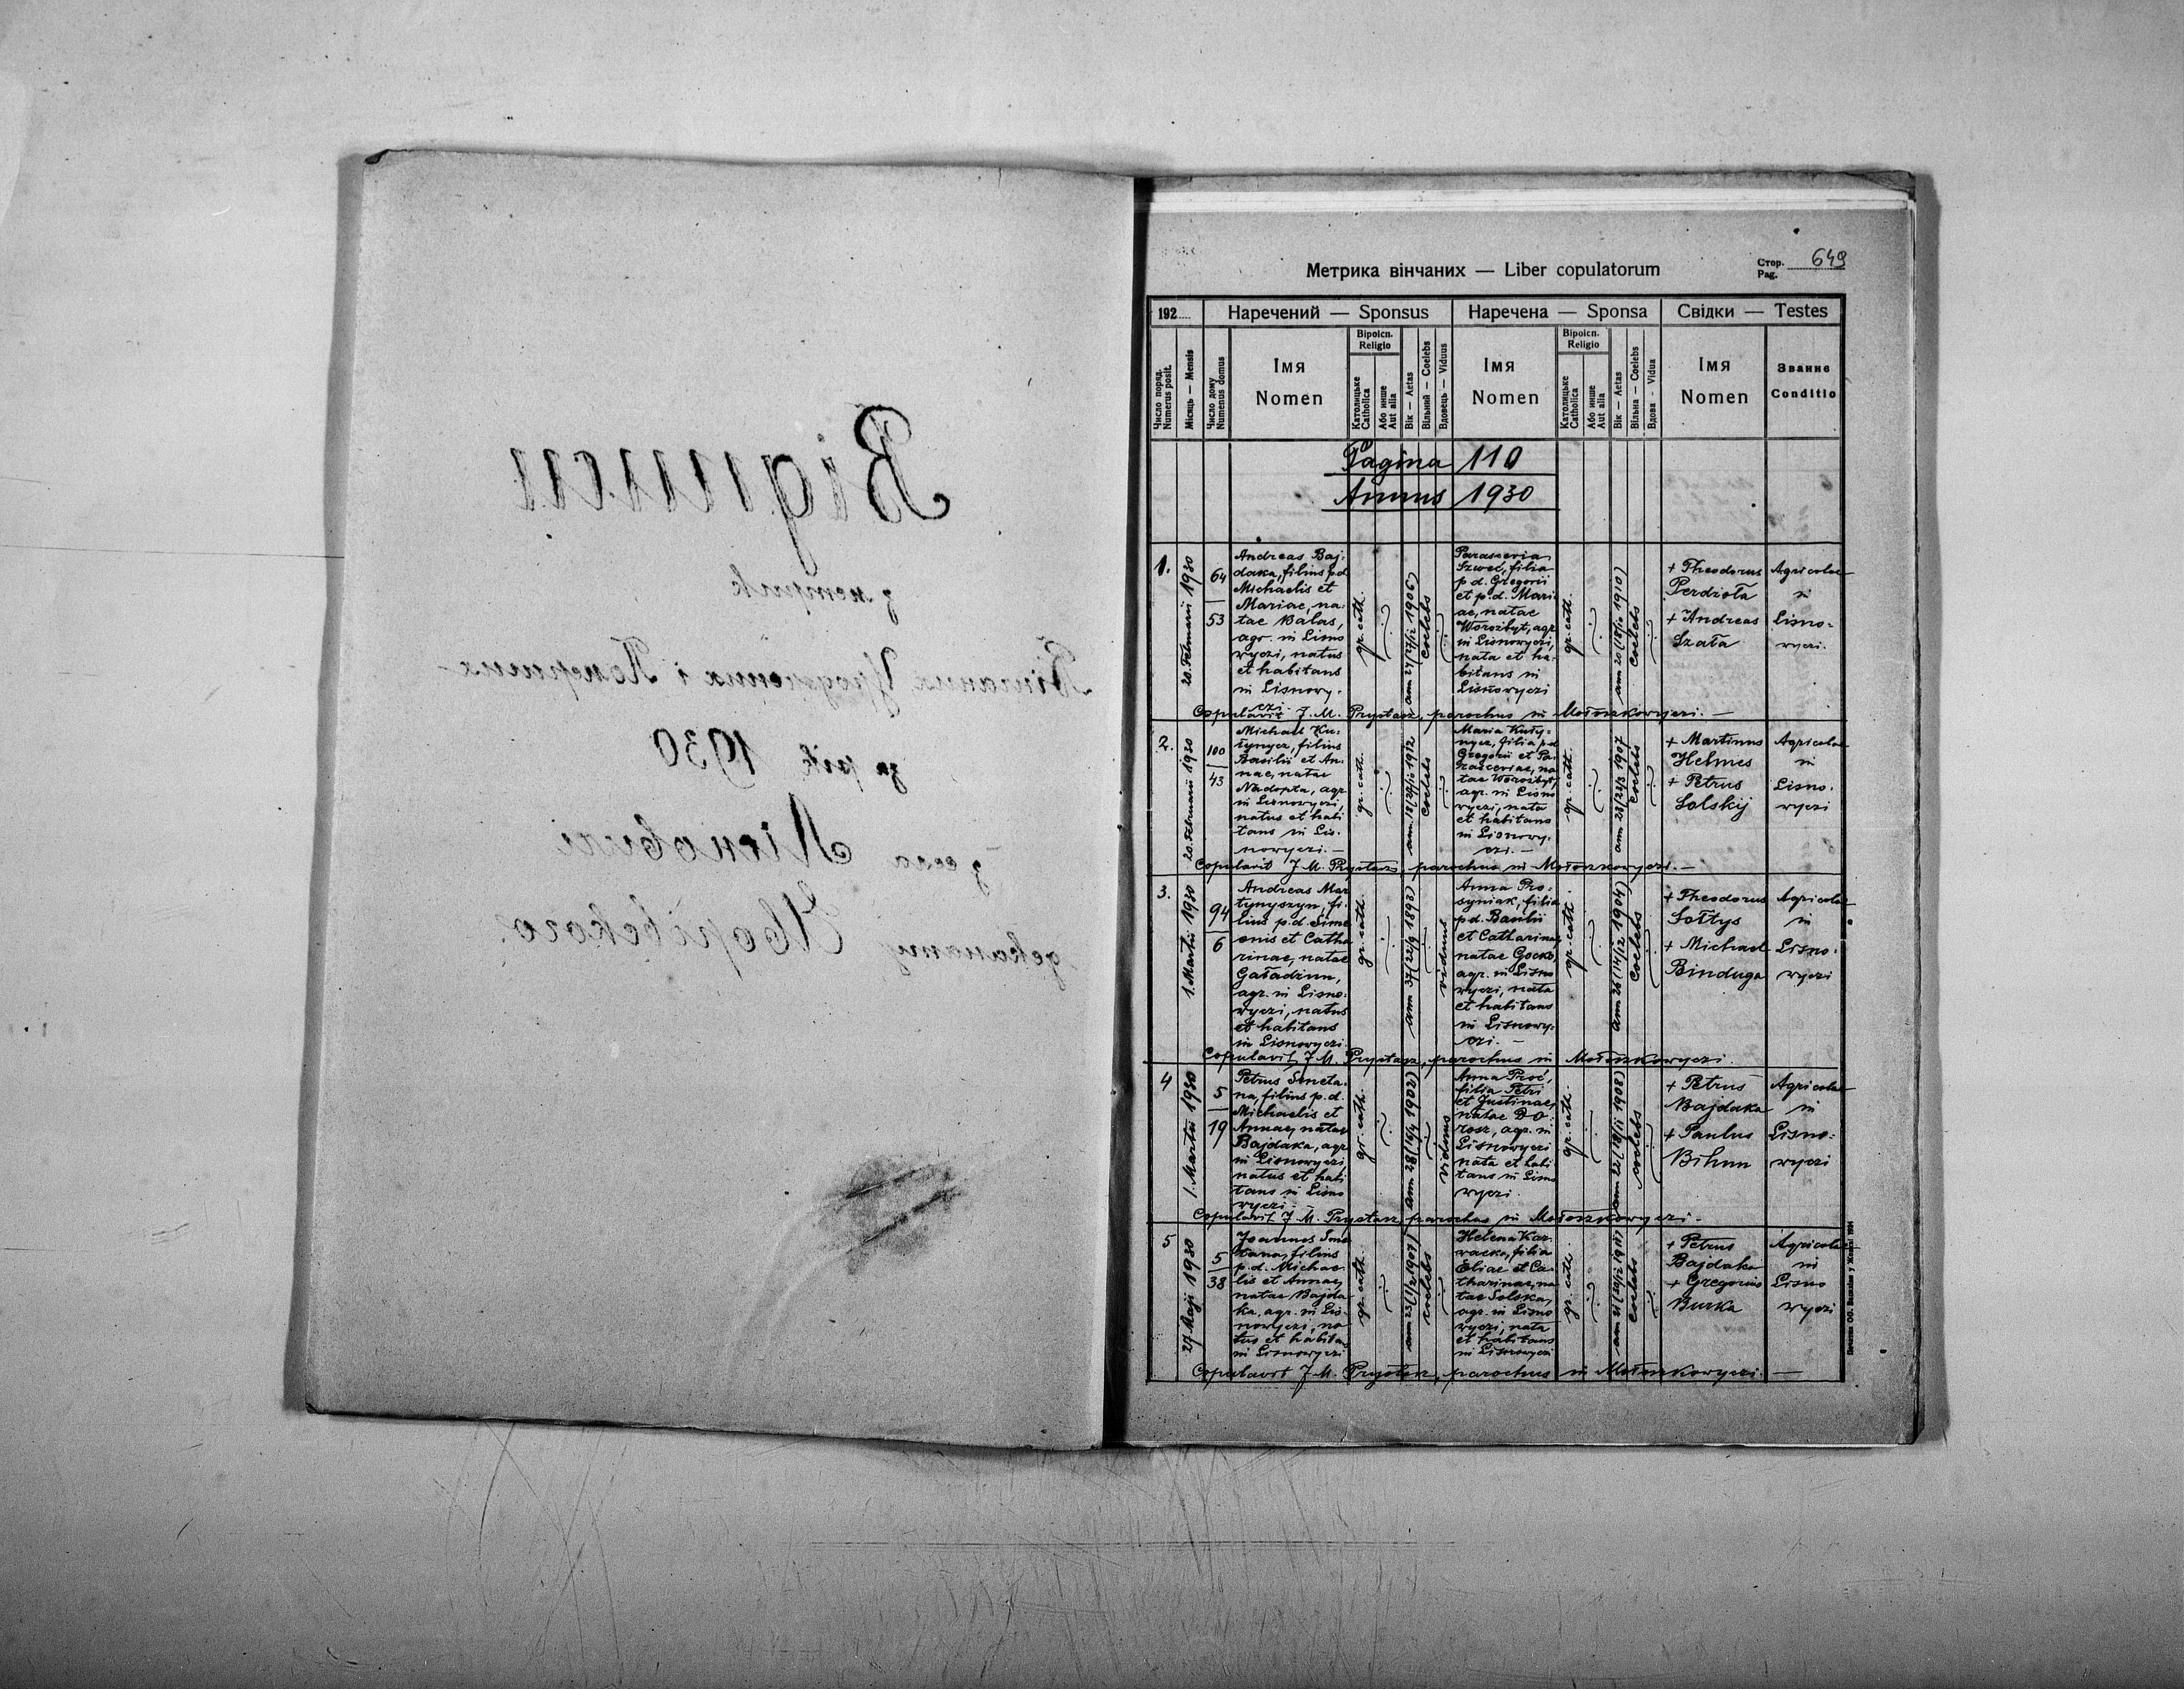 Відписи
з метрик
Вінчаних Уроджених і Померших
за рік 1930
з села Лісновичі
деканату Яворівського.
Метрика вінчаних — Liber copulatorum
Стор. Pag. 649
192
Наречений — Sponsus
Наречена — Sponsa
Свідки — Testes
Число поряд. Numerus posit.
Місяць — Mensis
Число дому Numerus domus
Імя Nomen
Віроісп. Religio
Католицьке Catholica
Або инше Aut alia
Вік — Aetas
Вільний — Coelebs
Вдовець — Viduus
Імя Nomen
Віроісп. Religio
Католицьке Catholica
Або инше Aut alia
Вік — Aetas
Вільна — Coelebs
Вдова - Vidua
Імя Nomen
Званнє Conditio
Pagina 110
Annus 1930
1.
20. Februarii 1930
64
53
Andreas Baj-
daka, filius p.d.
Michaelis et
Mariae, na-
tae Balas,
agr. in Lisno
wyczi, natus
et habitans
in Lisnowy-
czi.
gr. cath.
coelebs
Parascevia
Szwec, filia
p.d. Gregorii
et p.d. Mari
ae, natae
Worożbyt, agr.
in Lisnowyczi,
nata et ha-
bitans in
Lisnowyczi
gr. cath.
ann 20 (18/10 1910)
coelebs
+ Theodorus
Perdioła
+ Andreas
Szała
Agricolae
in
Lisno-
wyczi.
Copulavit J. M. Prystasz, parochus in Mołoszkowyczi. —
2.
20. Februarii 1930
100
43
Michael Ku-
tynycz, filius
Basilii et An-
nae, natae
Nadopta, agr.
in Lisnowyczi,
natus et habi
tans in Lis-
nowyczi. —
gr. cath.
coelebs
Maria Kuty-
nycz, filia p.d.
Gregorii et Pa-
rasceviae, na
tae Worożbyt,
agr. in Lisno
wyczi, nata
et habitans
in Lisnowy-
czi. —
gr. cath.
coelebs
+ Martinus
Helmes
+ Petrus
Solskij
Agricolae
in
Lisno-
wyczi
Copulavit J. M. Prystasz, parochus in Mołoszkowyczi. —
3.
1. Martii 1930
94
6
Andreas Mar
tynyszyn, fi-
lius p.d. Sime
onis et Catha
rinae, natae
Gaładzun,
agr. in Lisno-
wyczi, natus
et habitans
in Lisnowyczi.
gr. cath.
ann 37 (22/9 1892)
viduus
Anna Pro-
syniak, filia
p.d. Basilii
et Catharinae,
natae Gocko,
agr. in Lisno
wyczi, nata
et habitans
in Lisnowy-
czi. —
gr. cath.
ann 26 (14/12 1904)
coelebs
+ Theodorus
Sołtys
+ Michael
Binduga
Agricolae
in
Lisno-
wyczi
Copulavit J. M. Prystasz, parochus in Mołoszkowyczi.
4
1. Martii 1930
5
19
Petrus Smeta-
na, filius p.d.
Michaelis et
Annae, natae
Bajdaka, agr.
in Lisnowyczi
natus et habi
tans in Lisno
wyczi. —
gr. cath.
viduus
Anna Proć,
filia Petri
et Justinae,
natae Do-
rosz, agr. in
Lisnowyczi
nata et habi
tans in Lisno
wyczi.
gr. cath.
coelebs
+ Petrus
Bajdaka
+ Paulus
Bihun
Agricolae
in
Lisno-
wyczi
Copulavit J. M. Prystasz, parochus in Mołoszkowyczi. —
5
27 Maji 1930
5
38
Joannes Sme
tana, filius
p.d. Michae-
lis et Annae,
natae Bajda-
ka, agr. in Lis-
nowyczi, na
tus et habitans
in Lisnowyczi
gr. cath.
coelebs
Helena Kar-
wacka, filia
Eliae et Ca-
tharinae, na
tae Solska,
agr. in Lisno
wyczi, nata
et habitans
in Lisnowyczi
gr. cath.
coelebs
+ Petrus
Bajdaka
+ Gregorius
Burka
Agricolae
in
Lisno
wyczi
Copulavit J. M. Prystasz, parochus in Mołoszkowyczi. —